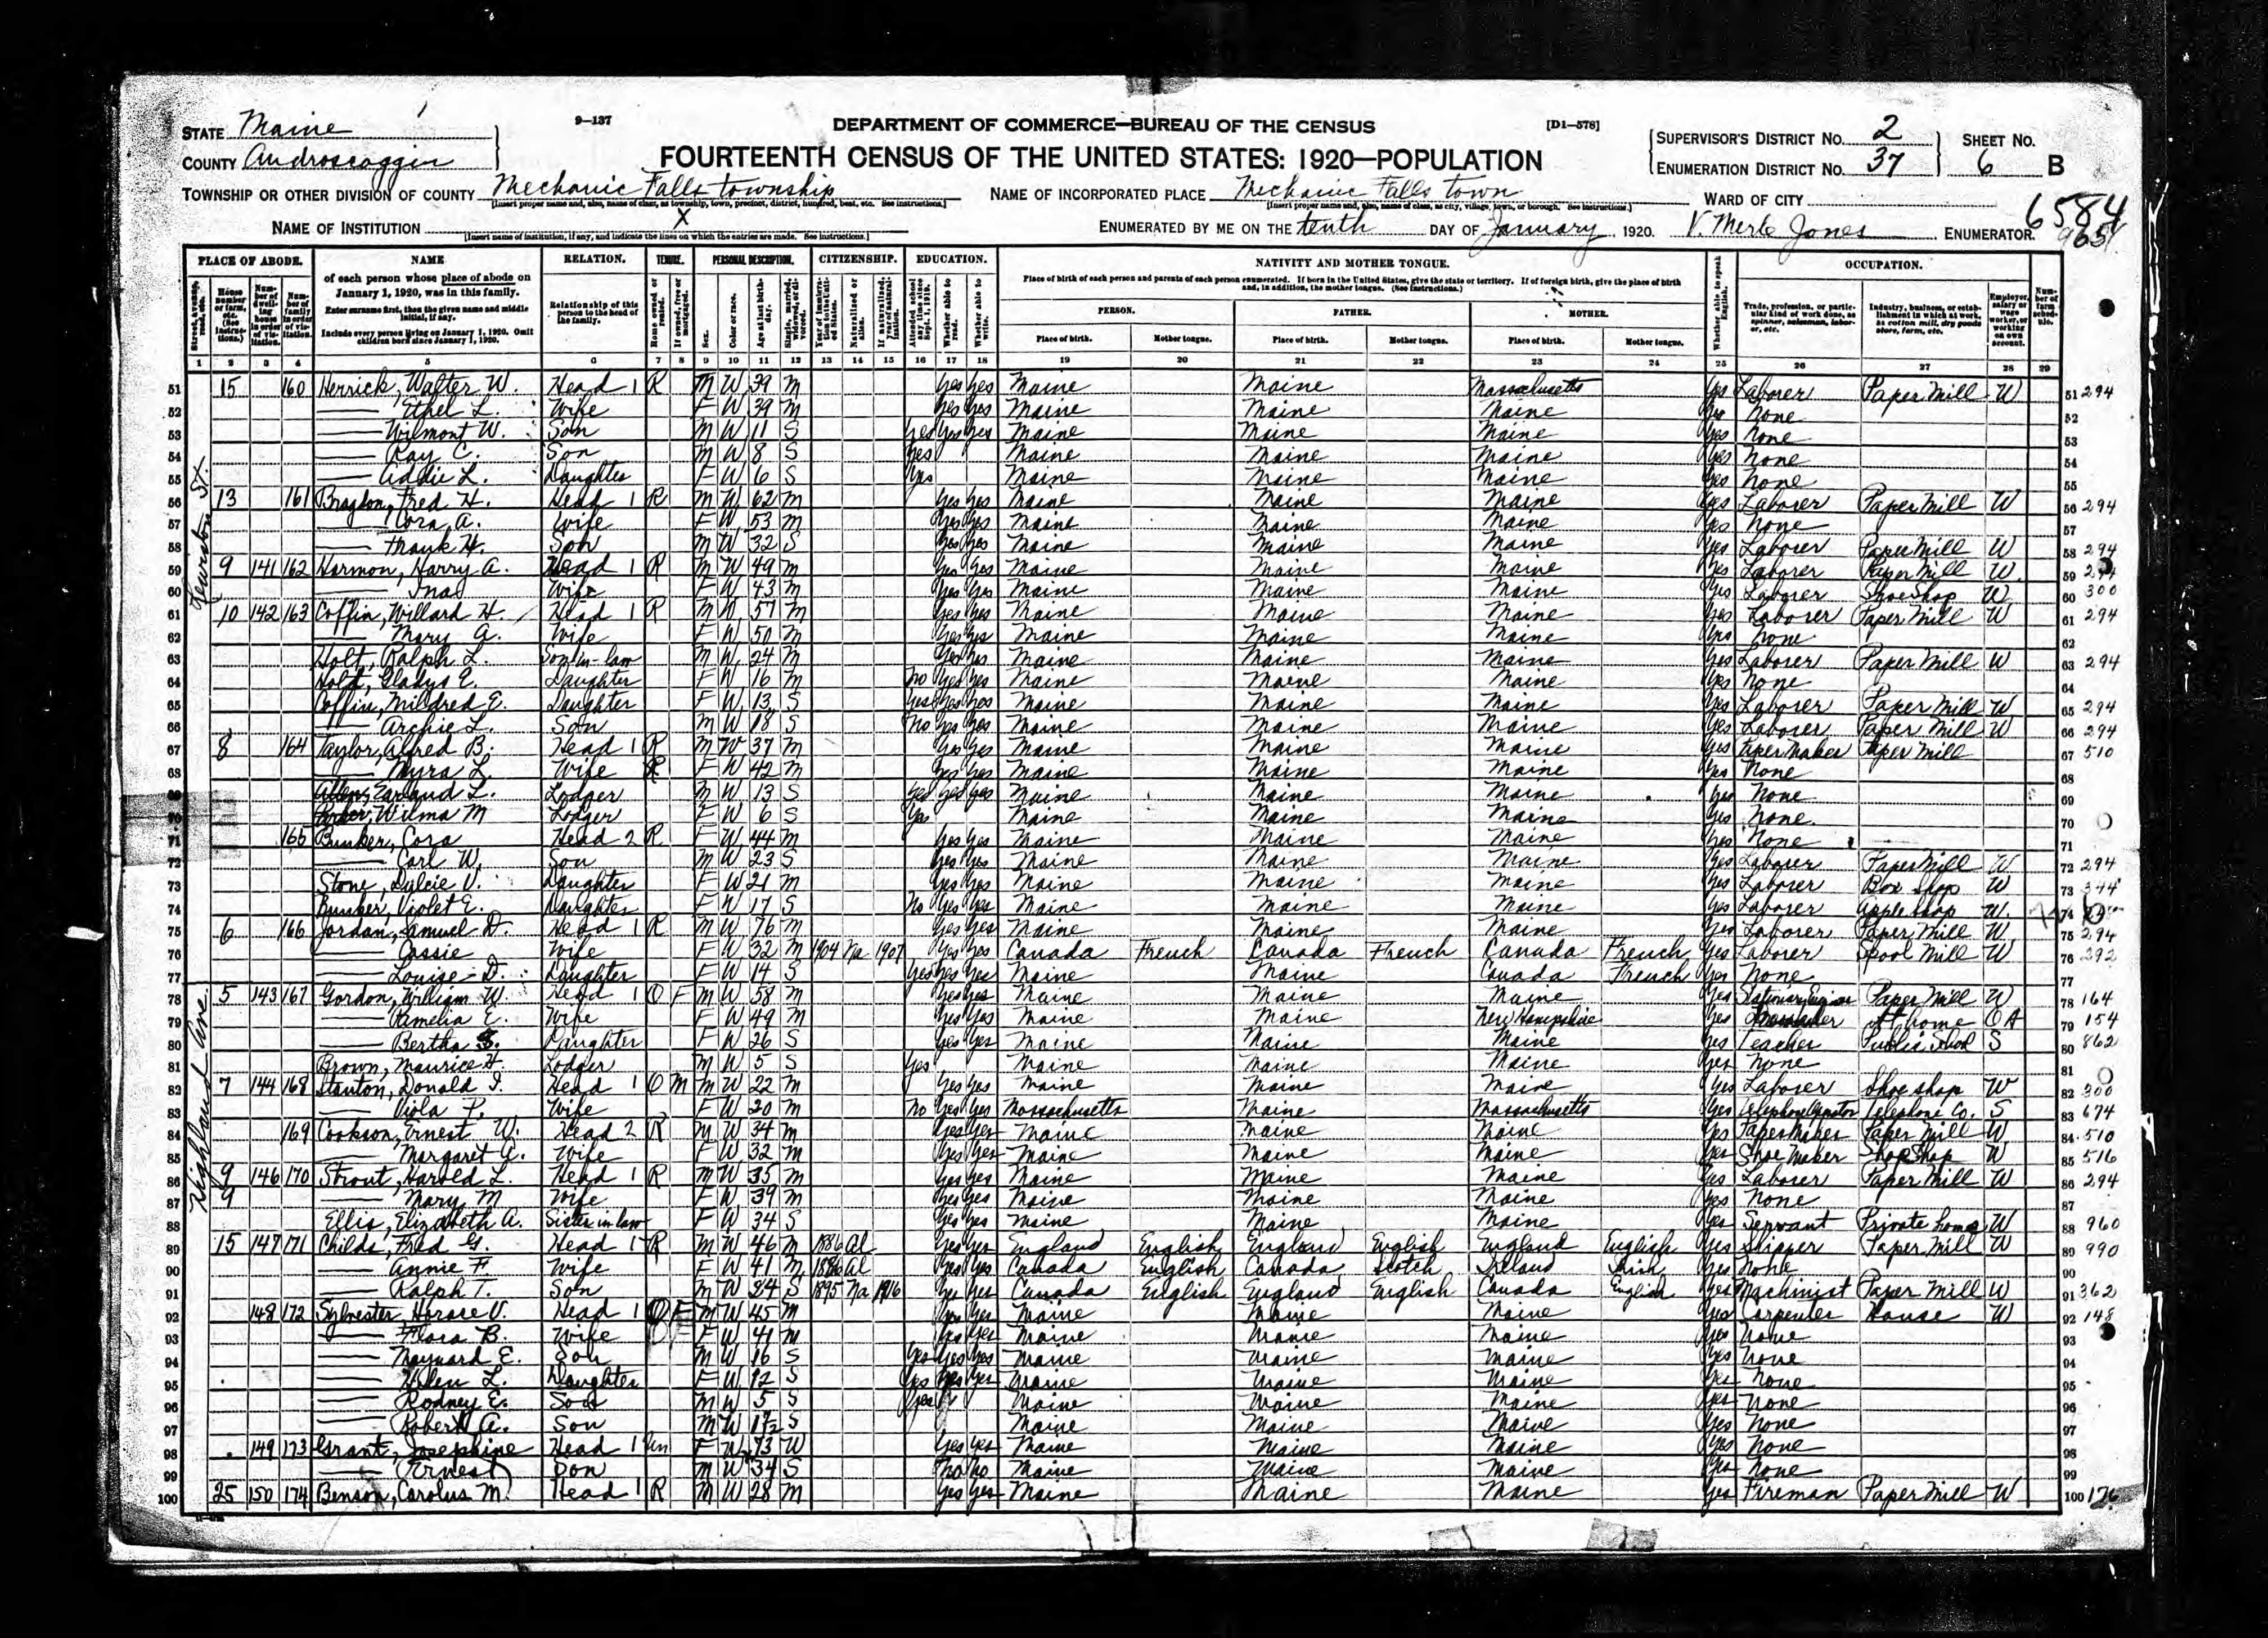 9-137
DEPARTMENT OF COMMERCE—BUREAU OF THE CENSUS
[D1-578]
STATE Maine
COUNTY Androscoggin
FOURTEENTH CENSUS OF THE UNITED STATES: 1920—POPULATION
SUPERVISOR'S DISTRICT NO. 2
ENUMERATION DISTRICT NO. 37
SHEET NO. 6 B
TOWNSHIP OR OTHER DIVISION OF COUNTY Mechanic Falls township
NAME OF INCORPORATED PLACE Mechanic Falls town
WARD OF CITY
6584
NAME OF INSTITUTION X
ENUMERATED BY ME ON THE tenth DAY OF January, 1920. V. Merle Jones ENUMERATOR.
PLACE OF ABODE. NAME RELATION. TENURE. PERSONAL DESCRIPTION. CITIZENSHIP. EDUCATION. NATIVITY AND MOTHER TONGUE. OCCUPATION.
of each person whose place of abode on January 1, 1920, was in this family.
Enter surname first, then the given name and middle initial, if any.
Include every person living on January 1, 1920. Omit children born since January 1, 1920.
Relationship of this person to the head of the family.
Place of birth of each person and parents of each person enumerated. If born in the United States, give the state or territory. If of foreign birth, give the place of birth and, in addition, the mother tongue. (See Instructions.)
PERSON. FATHER. MOTHER.
Place of birth. Mother tongue. Place of birth. Mother tongue. Place of birth. Mother tongue.
1 2 3 4 5 6 7 8 9 10 11 12 13 14 15 16 17 18 19 20 21 22 23 24 25 26 27 28 29
Lewiston St.
51 15 160 Herrick, Walter W. Head 1 R M W 39 M Yes Yes Maine Maine Massachusetts Yes Laborer Paper Mill W 51 294
52 Ethel L. Wife F W 39 M Yes Yes Maine Maine Maine Yes None 52
53 Wilmont W. Son M W 11 S Yes Yes Yes Maine Maine Maine Yes None 53
54 Ray C. Son M W 8 S Yes Maine Maine Maine Yes None 54
55 Addie L. Daughter F W 6 S Yes Maine Maine Maine Yes None 55
56 13 161 Bragdon, Fred H. Head 1 R M W 62 M Yes Yes Maine Maine Maine Yes Laborer Paper Mill W 56 294
57 Cora A. Wife F W 53 M Yes Yes Maine Maine Maine Yes None 57
58 Frank H. Son M W 32 S Yes Yes Maine Maine Maine Yes Laborer Paper Mill W 58 294
59 9 141 162 Harmon, Harry A. Head 1 R M W 49 M Yes Yes Maine Maine Maine Yes Laborer Paper Mill W 59
60 Ina Wife F W 43 M Yes Yes Maine Maine Maine Yes Laborer Shoe Shop W 60 300
61 10 142 163 Coffin, Willard H. Head 1 R M W 57 M Yes Yes Maine Maine Maine Yes Laborer Paper Mill W 61 294
62 Mary A. Wife F W 50 M Yes Yes Maine Maine Maine Yes None 62
63 Holt, Ralph L. Son-in-law M W 24 M Yes Yes Maine Maine Maine Yes Laborer Paper Mill W 63 294
64 Holt, Gladys E. Daughter F W 16 M No Yes Yes Maine Maine Maine Yes None 64
65 Coffin, Mildred E. Daughter F W 13 S Yes Yes Yes Maine Maine Maine Yes Laborer Paper Mill W 65 294
66 Archie L. Son M W 18 S No Yes Yes Maine Maine Maine Yes Laborer Paper Mill W 66 294
67 8 164 Taylor, Alfred B. Head 1 R M W 37 M Yes Yes Maine Maine Maine Yes Paper Maker Paper Mill 67 510
68 Myra L. Wife R F W 42 M Yes Yes Maine Maine Maine Yes None 68
69 Allen, L. Lodger M W 13 S Yes Yes Yes Maine Maine Maine Yes None 69
70 Wilma M Lodger F W 6 S Yes Maine Maine Maine Yes None 70
71 165 Bunker, Cora Head 2 R F W 44 M Yes Yes Maine Maine Maine Yes None 71
72 Carl W. Son M W 23 S Yes Yes Maine Maine Maine Yes Laborer Paper Mill W 72 294
73 Stone, Dulcie V. Daughter F W 21 M Yes Yes Maine Maine Maine Yes Laborer Box Shop W 73 344
74 Bunker, Violet E. Daughter F W 17 S No Yes Yes Maine Maine Maine Yes Laborer Apple Shop W 74
75 6 166 Jordan, Samuel D. Head 1 R M W 76 M Yes Yes Maine Maine Maine Yes Laborer Paper Mill W 75 294
76 Cassie Wife F W 32 M 1904 Na 1907 Yes Yes Canada French Canada French Canada French Yes Laborer Spool Mill W 76 292
77 Louise D. Daughter F W 14 S Yes Yes Yes Maine Maine Canada French Yes None 77
Highland Ave.
78 5 143 167 Gordon, William W. Head 1 O F M W 58 M Yes Yes Maine Maine Maine Yes Stationary Engineer Paper Mill W 78 164
79 Pamelia E. Wife F W 49 M Yes Yes Maine Maine New Hampshire Yes Dressmaker At home OA 79 154
80 Bertha S. Daughter F W 26 S Yes Yes Maine Maine Maine Yes Teacher Public School S 80 862
81 Brown, Maurice H. Lodger M W 5 S Yes Maine Maine Maine Yes None 81
82 7 144 168 Stanton, Donald I. Head 1 O M M W 22 M Yes Yes Maine Maine Maine Yes Laborer Shoe shop W 82 300
83 Viola P. Wife F W 20 M No Yes Yes Massachusetts Maine Massachusetts Yes Telephone Operator Telephone Co. S 83 674
84 169 Cookson, Ernest W. Head 2 R M W 34 M Yes Yes Maine Maine Maine Yes Paper Maker Paper Mill W 84 510
85 Margaret A. Wife F W 32 M Yes Yes Maine Maine Maine Yes Shoe Maker Shoe Shop W 85 516
86 9 146 170 Strout, Harold L. Head 1 R M W 35 M Yes Yes Maine Maine Maine Yes Laborer Paper Mill W 86 294
87 9 Mary M Wife F W 39 M Yes Yes Maine Maine Maine Yes None 87
88 Ellis, Elizabeth A. Sister in law F W 34 S Yes Yes Maine Maine Maine Yes Servant Private home W 88 960
89 15 147 171 Childs, Fred G. Head 1 R M W 46 M 1886 Al Yes Yes England English England English England English Yes Skipper Paper Mill W 89 990
90 Annie F. Wife F W 41 M 1886 Al Yes Yes Canada English Canada Scotch Ireland Irish Yes None 90
91 Ralph T. Son M W 24 S 1895 Na 1916 Yes Yes Canada English England English Canada English Yes Machinist Paper Mill W 91 362
92 148 172 Sylvester, Horace V. Head 1 O F M W 45 M Yes Yes Maine Maine Maine Yes Carpenter House W 92 148
93 Flora B. Wife F W 41 M Yes Yes Maine Maine Maine Yes None 93
94 Maynard E. Son M W 16 S Yes Yes Yes Maine Maine Maine Yes None 94
95 Helen L. Daughter F W 12 S Yes Yes Yes Maine Maine Maine Yes None 95
96 Rodney E. Son M W 5 S Maine Maine Maine Yes None 96
97 Robert A. Son M W 1 S Maine Maine Maine Yes None 97
98 149 173 Grant, Josephine Head 1 Un F W 73 W Yes Yes Maine Maine Maine Yes None 98
99 Ernest Son M W 34 S No No Maine Maine Maine Yes None 99
100 25 150 174 Benson, Carolus M. Head 1 R M W 28 M Yes Yes Maine Maine Maine Yes Fireman Paper Mill W 100 176